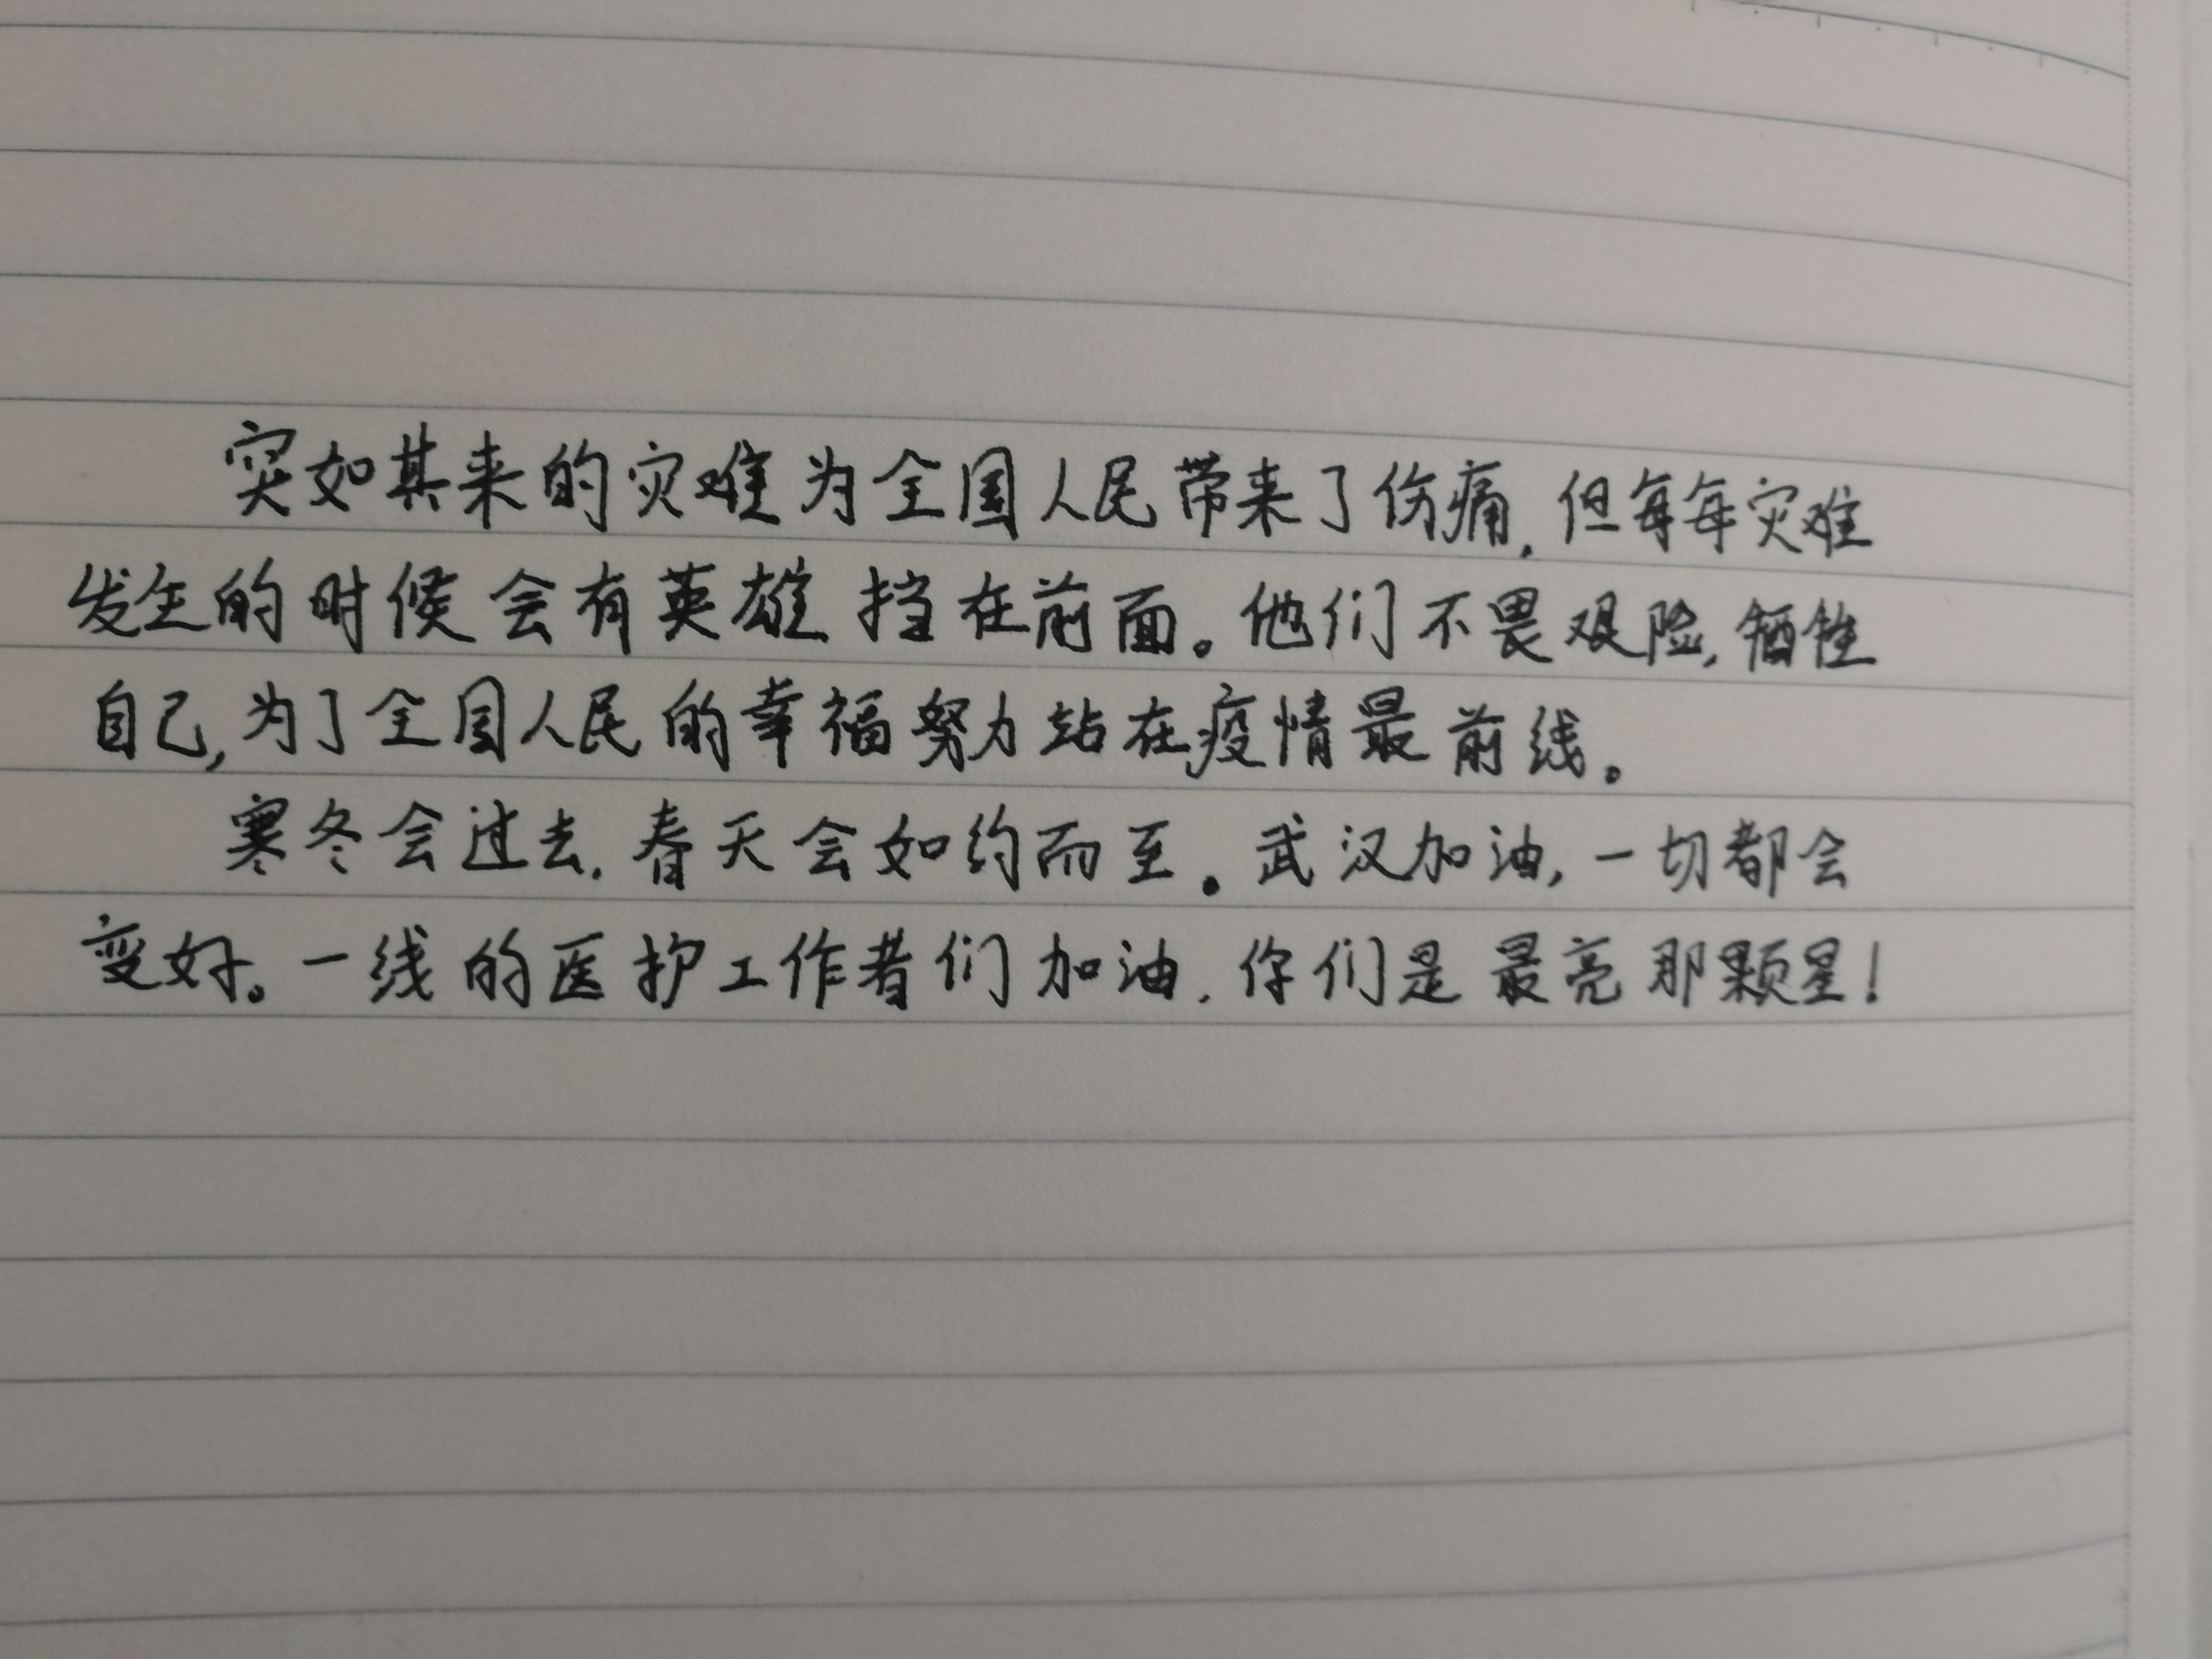 突如其来的灾难为全国人民带来了伤痛,但每每灾难
发生的时候会有英雄挡在前面。他们不畏艰险,牺牲
自己,为了全国人民的幸福努力站在疫情最前线。
寒冬会过去,春天会如约而至。武汉加油,一切都会
变好。一线的医护工作者们加油,你们是最亮那颗星!